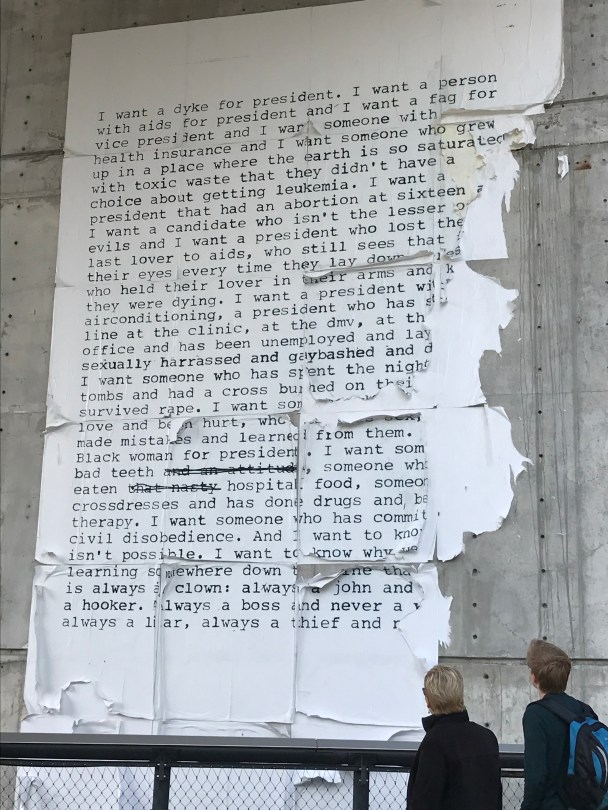 I want a dyke for president. I want a person
with aids for president and I want a fag for
vice president and I want someone with
health insurance and I want someone who grew
up in a place where the earth is so saturated
with toxic waste that they didn't have a
choice about getting leukemia. I want a
president that had an abortion at sixteen a
I want a candidate who isn't the lesser o
evils and I want a president who lost the
last lover to aids, who still sees that
their eyes every time they lay down
who held their lover in their arms and k
they were dying. I want a president wit
airconditioning, a president who has s
line at the clinic, at the dmv, at th
office and has been unemployed and lay
sexually harrassed and gaybashed and d
I want someone who has spent the night
tombs and had a cross burned on thei
survived rape. I want som
love and been hurt, who
made mistakes and learned from them.
Black woman for president. I want som
bad teeth and an attitude, someone wh
eaten that nasty hospital food, someon
crossdresses and has done drugs and be
therapy. I want someone who has commit
civil disobedience. And I want to kno
isn't possible. I want to know why we
learning somewhere down t ne tha
is always a clown: always a john and
a hooker. Always a boss and never a w
always a liar, always a thief and n